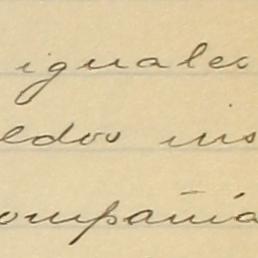 iguales
eldos ins
ompañía